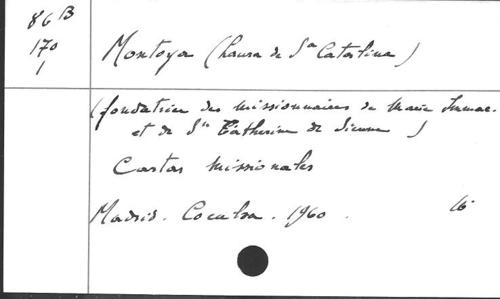 86 B
170
1
Montoya (Laura de Sta Catalina)
(fondatrice des missionnaires de Marie Immac.
et de Ste Catherine de Sienne)
Cartas missionales
Madrid. Coculsa. 1960. 16°